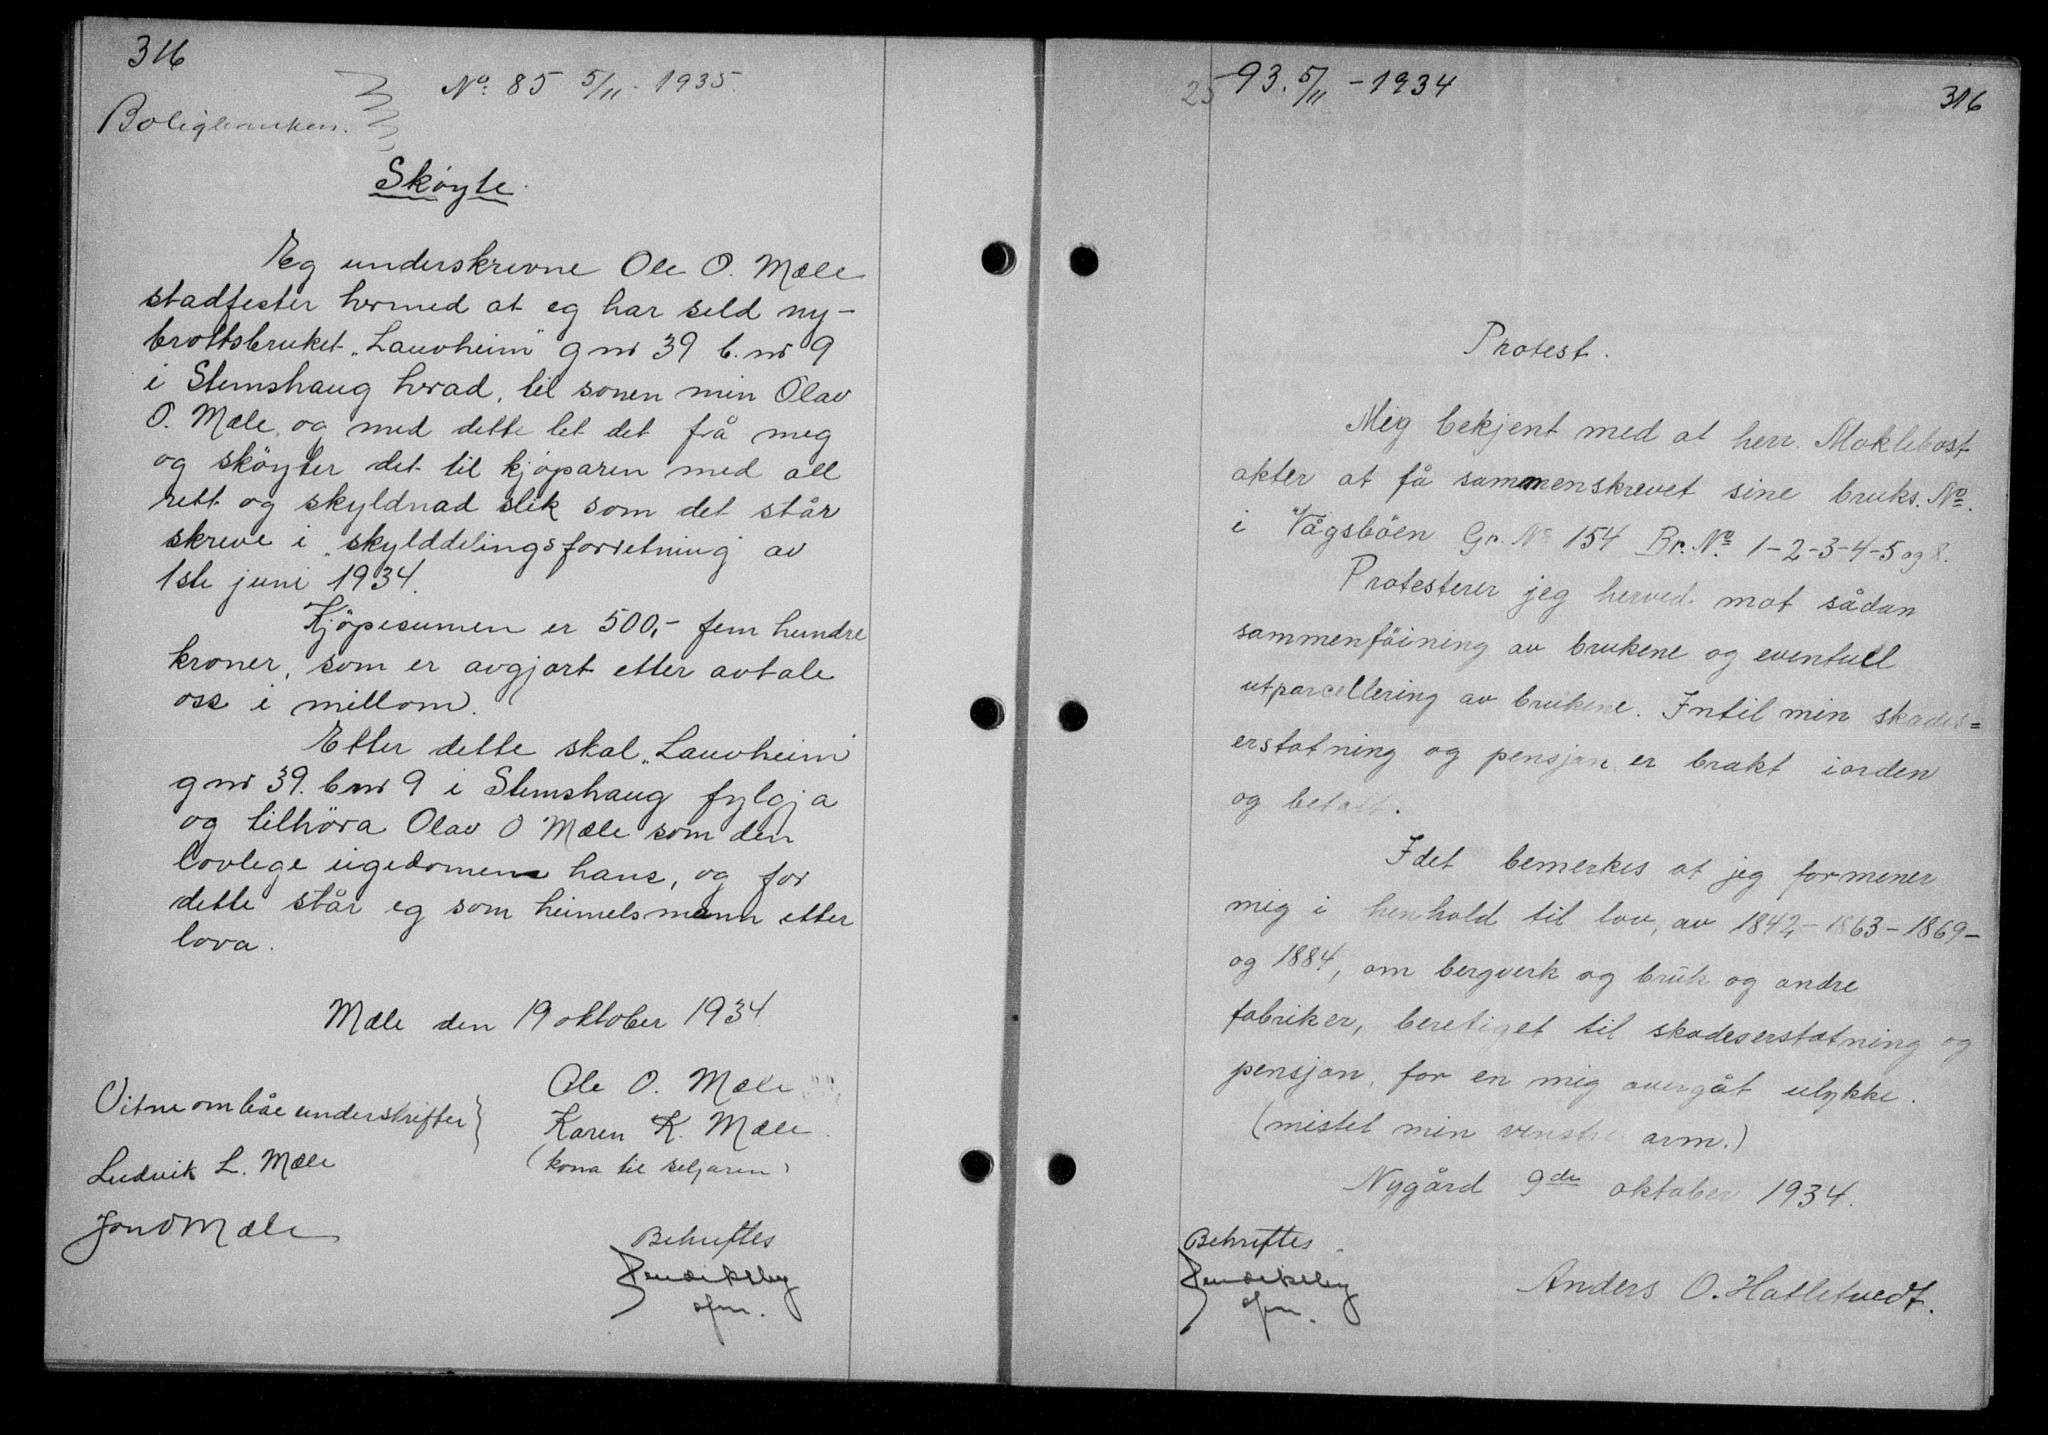 316
Nº 85 5/11 - 1935.
Boligbanken.
Skøyte.
Eg underskrevne Ole O. Mæle
stadfester hermed at eg har seld ny-
brottsbruket "Lauvheim" gnr 39 b.nr 9
i Stemshaug herad, til sonen min Olav
O. Mæle, og med dette let det frå meg
og skøyter det til kjøparen med all
rett og skyldnad slik som det står
skreve i "skylddelingsforretning" av
1ste juni 1934.
Kjöpesumen er 500,- fem hundre
kroner, som er avgjort etter avtale
oss i millom.
Etter dette skal "Lauvheim"
gnr 39. bnr 9 i Stemshaug fylgja
og tilhöra Olav O Mæle som den
lovlege eigedomen hans, og for
dette står eg som heimelsmann etter
lova.
Mæle den 19 oktober 1934.
Ole O. Mæle
Karen K. Mæle.
(kona til seljaren)
Vitne om båe underskrifter }
Ludvik L. Mæle
Jon O Mæle
Bekreftes
ofm.
93. 5/11 - 1934
316
Protest.
Mig bekjent med at herr. Moklebost
akter at få sammenskrevet sine bruks. Nº.
i Vågsböen Gr. Nº 154 Br. Nº. 1-2-3-4-5 og 8.
Protesterer jeg herved mot sådan
sammenföining av brukene og eventuell
utparcellering av brukene. Intil min skades=
erstatning og pensjon er brakt i orden
og betalt.
I det bemerkes at jeg formener
mig i henhold til lov, av 1842,- 1863- 1869-
og 1884, om bergverk og bruk og andre
fabriker, beretiget til skadeserstatning og
pensjon, for en mig overgåt ulykke.
(mistet min venstre arm.)
Nygård 9de oktober 1934.
Bekreftes
ofm.
Anders O. Hatletvedt.